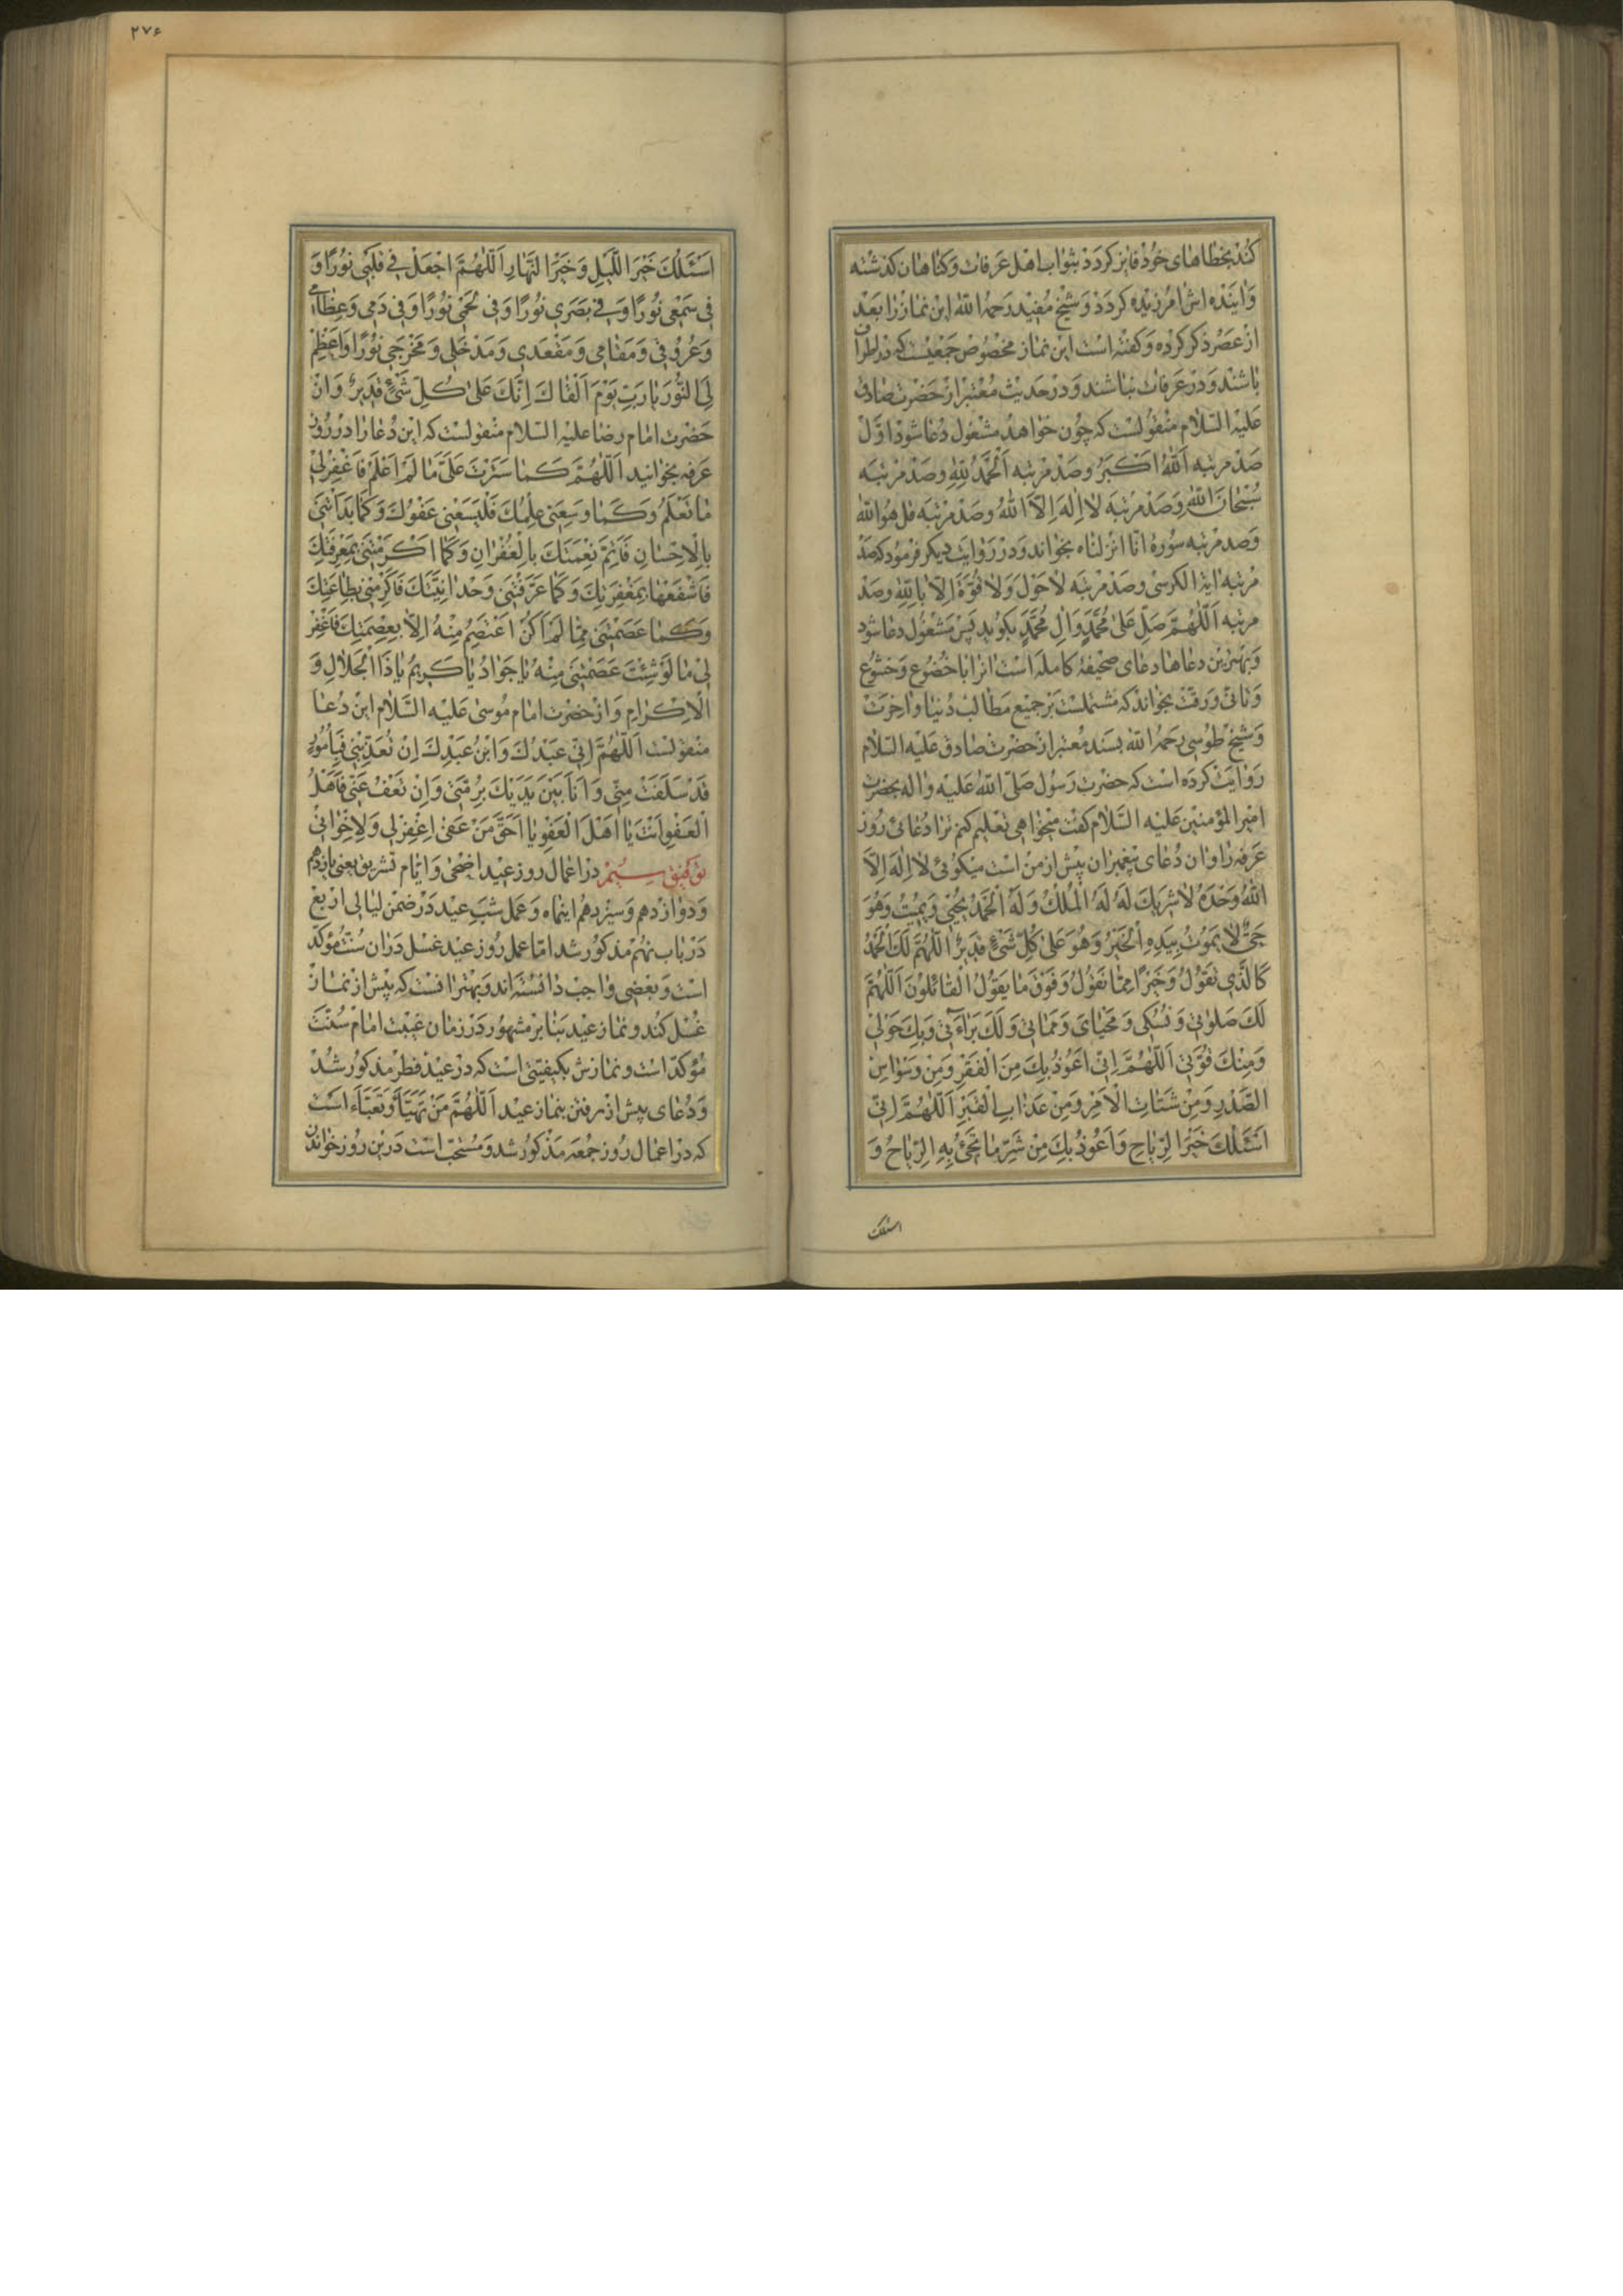 كند بخطاهاى خود فايز كردد بثواب اهل عرفات و كناهان كذشته
و اينده اش امرزيده كردد و شيخ مفيد رحمه الله اين نماز را بعد
از عصر ذكر كرده و كفته است اين نماز مخصوص جمعيست كه در اطراف
باشند و در عرفات نباشند و در حديث معتبر از حضرت صادق
عليه السّلام منقولست كه چون خواهد مشغول دعا شود اوّل
صد مرتبه اَللهُ اَكْبَرُ و صد مرتبه اَلْحَمْدُ لِلّٰهِ و صد مرتبه
سُبْحانَ اللهِ و صد مرتبه لا اِلٰهَ اِلاَّ اللهُ و صد مرتبه قل هو الله
و صد مرتبه سورهٔ انا انزلناه بخواند و در روايت ديكر فرمود كه صد
مرتبه اية الكرسى و صد مرتبه لا حَوْلَ وَلا قُوَّةَ اِلاّ بِاللّٰهِ و صد
مرتبه اَللّٰهُمَّ صَلِّ عَلىٰ مُحَمَّدٍ وَالِ مُحَمَّدٍ بكويد پس مشغول دعا شود
و بهترين دعاها دعاى صحيفهٔ كامله است انرا با خضوع و خشوع
و تانّى و رقّت بخواند كه مشتملست بر جميع مطالب دنيا و اخرت
و شيخ طوسى رحمه الله بسند معتبر از حضرت صادق عليه السّلام
روايت كرده است كه حضرت رسول صلّى الله عليه و اله بحضرت
امير المؤمنين عليه السّلام كفت ميخواهى تعليم كنم ترا دعائى روز
عرفه را و ان دعاى پيغمبران پيش از من است ميكوئى لا اِلٰهَ اِلاَّ
اللهُ وَحْدَهُ لا شَرِيكَ لَهُ لَهُ الْمُلْكُ وَلَهُ الْحَمْدُ يُحْيِي وَيُمِيتُ وَهُوَ
حَيٌّ لا يَمُوتُ بِيَدِهِ الْخَيْرُ وَهُوَ عَلىٰ كُلِّ شَيْءٍ قَدِيرٌ اَللّٰهُمَّ لَكَ الْحَمْدُ
كَالَّذِي تَقُولُ وَخَيْرًا مِمّا نَقُولُ وَفَوْقَ ما يَقُولُ الْقائِلُونَ اَللّٰهُمَّ
لَكَ صَلوٰتي وَنُسُكي وَمَحْيايَ وَمَماتي وَلَكَ بَراءَتي وَبِكَ حَوْلي
وَمِنْكَ قُوَّتي اَللّٰهُمَّ اِنّي اَعُوذُ بِكَ مِنَ الْفَقْرِ وَمِنْ وَسْواسِ
الصَّدْرِ وَمِنْ شَتاتِ الْاَمْرِ وَمِنْ عَذابِ الْقَبْرِ اَللّٰهُمَّ اِنّي
اَسْئَلُكَ خَيْرَ الرِّياحِ وَاَعُوذُ بِكَ مِنْ شَرِّ ما تَجيئُ بِهِ الرِّياحُ وَ
اسئلك
۲۷۶
اَسْئَلُكَ خَيْرَ اللَّيْلِ وَخَيْرَ النَّهارِ اَللّٰهُمَّ اجْعَلْ في قَلْبي نُورًا وَ
في سَمْعي نُورًا وَفي بَصَري نُورًا وَفي لَحْمي نُورًا وَفي دَمي وَعِظامي
وَعُرُوقي وَمَقامي وَمَقْعَدي وَمَدْخَلي وَمَخْرَجي نُورًا وَاَعْظِمْ
لِيَ النُّورَ يا رَبِّ يَوْمَ اَلْقاكَ اِنَّكَ عَلىٰ كُلِّ شَيْءٍ قَدِيرٌ و از
حضرت امام رضا عليه السلام منقولست كه اين دعا را در روز
عرفه بخوانيد اَللّٰهُمَّ كَما سَتَرْتَ عَلَيَّ ما لَمْ اَعْلَمْ فَاغْفِرْ لي
ما تَعْلَمُ وَكَما وَسِعَني عِلْمُكَ فَلْيَسَعْني عَفْوُكَ وَكَما بَدَأْتَني
بِالْاِحْسانِ فَاَتِمَّ نِعْمَتَكَ بِالْغُفْرانِ وَكَما اَكْرَمْتَني بِمَعْرِفَتِكَ
فَاشْفَعْها بِمَغْفِرَتِكَ وَكَما عَرَّفْتَني وَحْدانِيَّتَكَ فَاَكْرِمْني بِطاعَتِكَ
وَكَما عَصَمْتَني مِمّا لَمْ اَكُنْ اَعْتَصِمُ مِنْهُ اِلاّ بِعِصْمَتِكَ فَاغْفِرْ
لي ما لَوْ شِئْتَ عَصَمْتَني مِنْهُ يا جَوادُ يا كَرِيمُ يا ذَا الْجَلالِ وَ
الْاِكْرامِ و از حضرت امام موسى عليه السّلام اين دعا
منقولست اَللّٰهُمَّ اِنّي عَبْدُكَ وَابْنُ عَبْدِكَ اِنْ تُعَذِّبْني فَبِاُمُورٍ
قَدْ سَلَفَتْ مِنّي وَاَنَا بَيْنَ يَدَيْكَ بِرُمَّتي وَاِنْ تَعْفُ عَنّي فَاَهْلُ
الْعَفْوِ اَنْتَ يا اَهْلَ الْعَفْوِ يا اَحَقَّ مَنْ عَفىٰ اِغْفِرْ لي وَلِاِخْواني
توفيق سيّم در اعمال روز عيد اضحى و ايّام تشريق يعنى يازدهم
و دوازدهم و سيزدهم اينماه و عمل شب عيد در ضمن ليالى اربع
در باب نهم مذكور شد امّا عمل روز عيد غسل دران سنّت مؤكّد
است و بعضى واجب دانسته اند و بهتر انست كه پيش از نماز
غسل كند و نماز عيد بنا بر مشهور در زمان غيبت امام سنّت
مؤكد است و نمازش بكيفيتى است كه در عيد فطر مذكور شد
و دعاى پيش از رفتن بنماز عيد اَللّٰهُمَّ مَنْ تَهَيَّأَ وَتَعَبَّأَ است
كه در اعمال روز جمعه مذكور شد و مستحب است درين روز خواندن